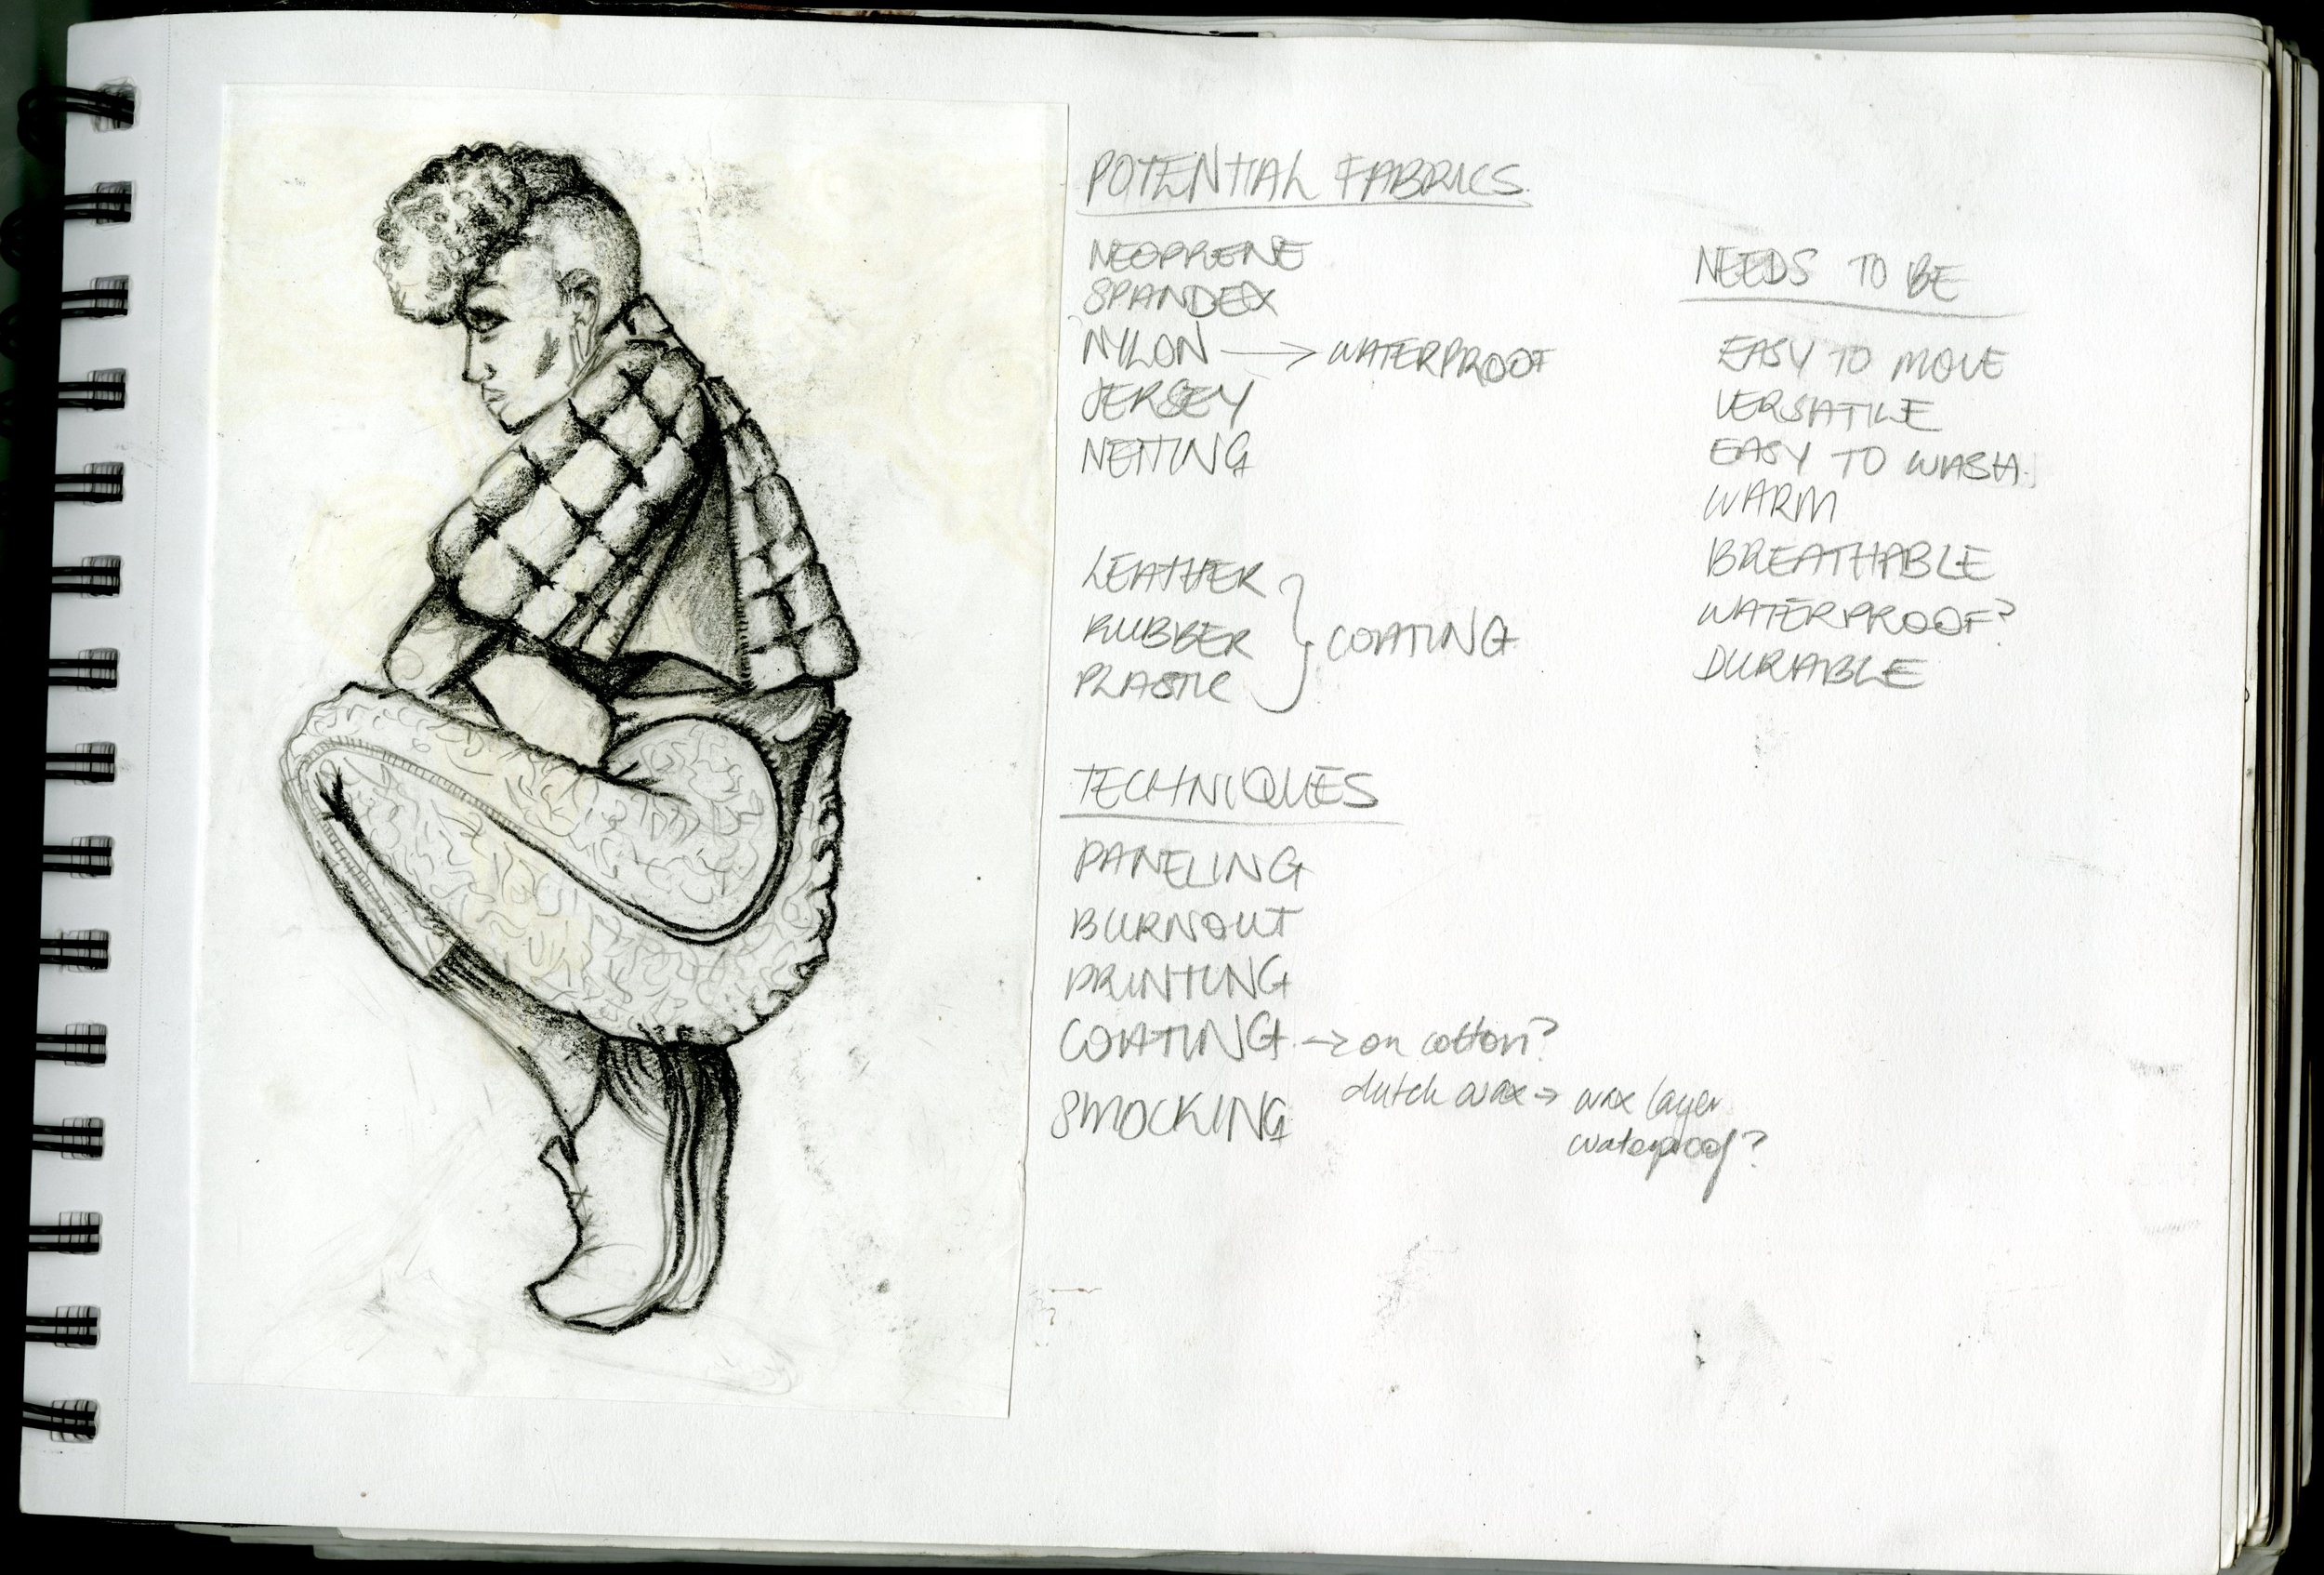 POTENTIAL FABRICS.
NEOPRENE
SPANDEX
NYLON → WATERPROOF
JERSEY
NETTING
LEATHER
RUBBER } COATING
PLASTIC
TECHNIQUES
PANELING
BURNOUT
PRINTING
COATING → on cotton?
dutch wax → wax layer
waterproof?
SMOCKING
NEEDS TO BE
EASY TO MOVE
VERSATILE
EASY TO WASH.
WARM
BREATHABLE
WATERPROOF?
DURABLE